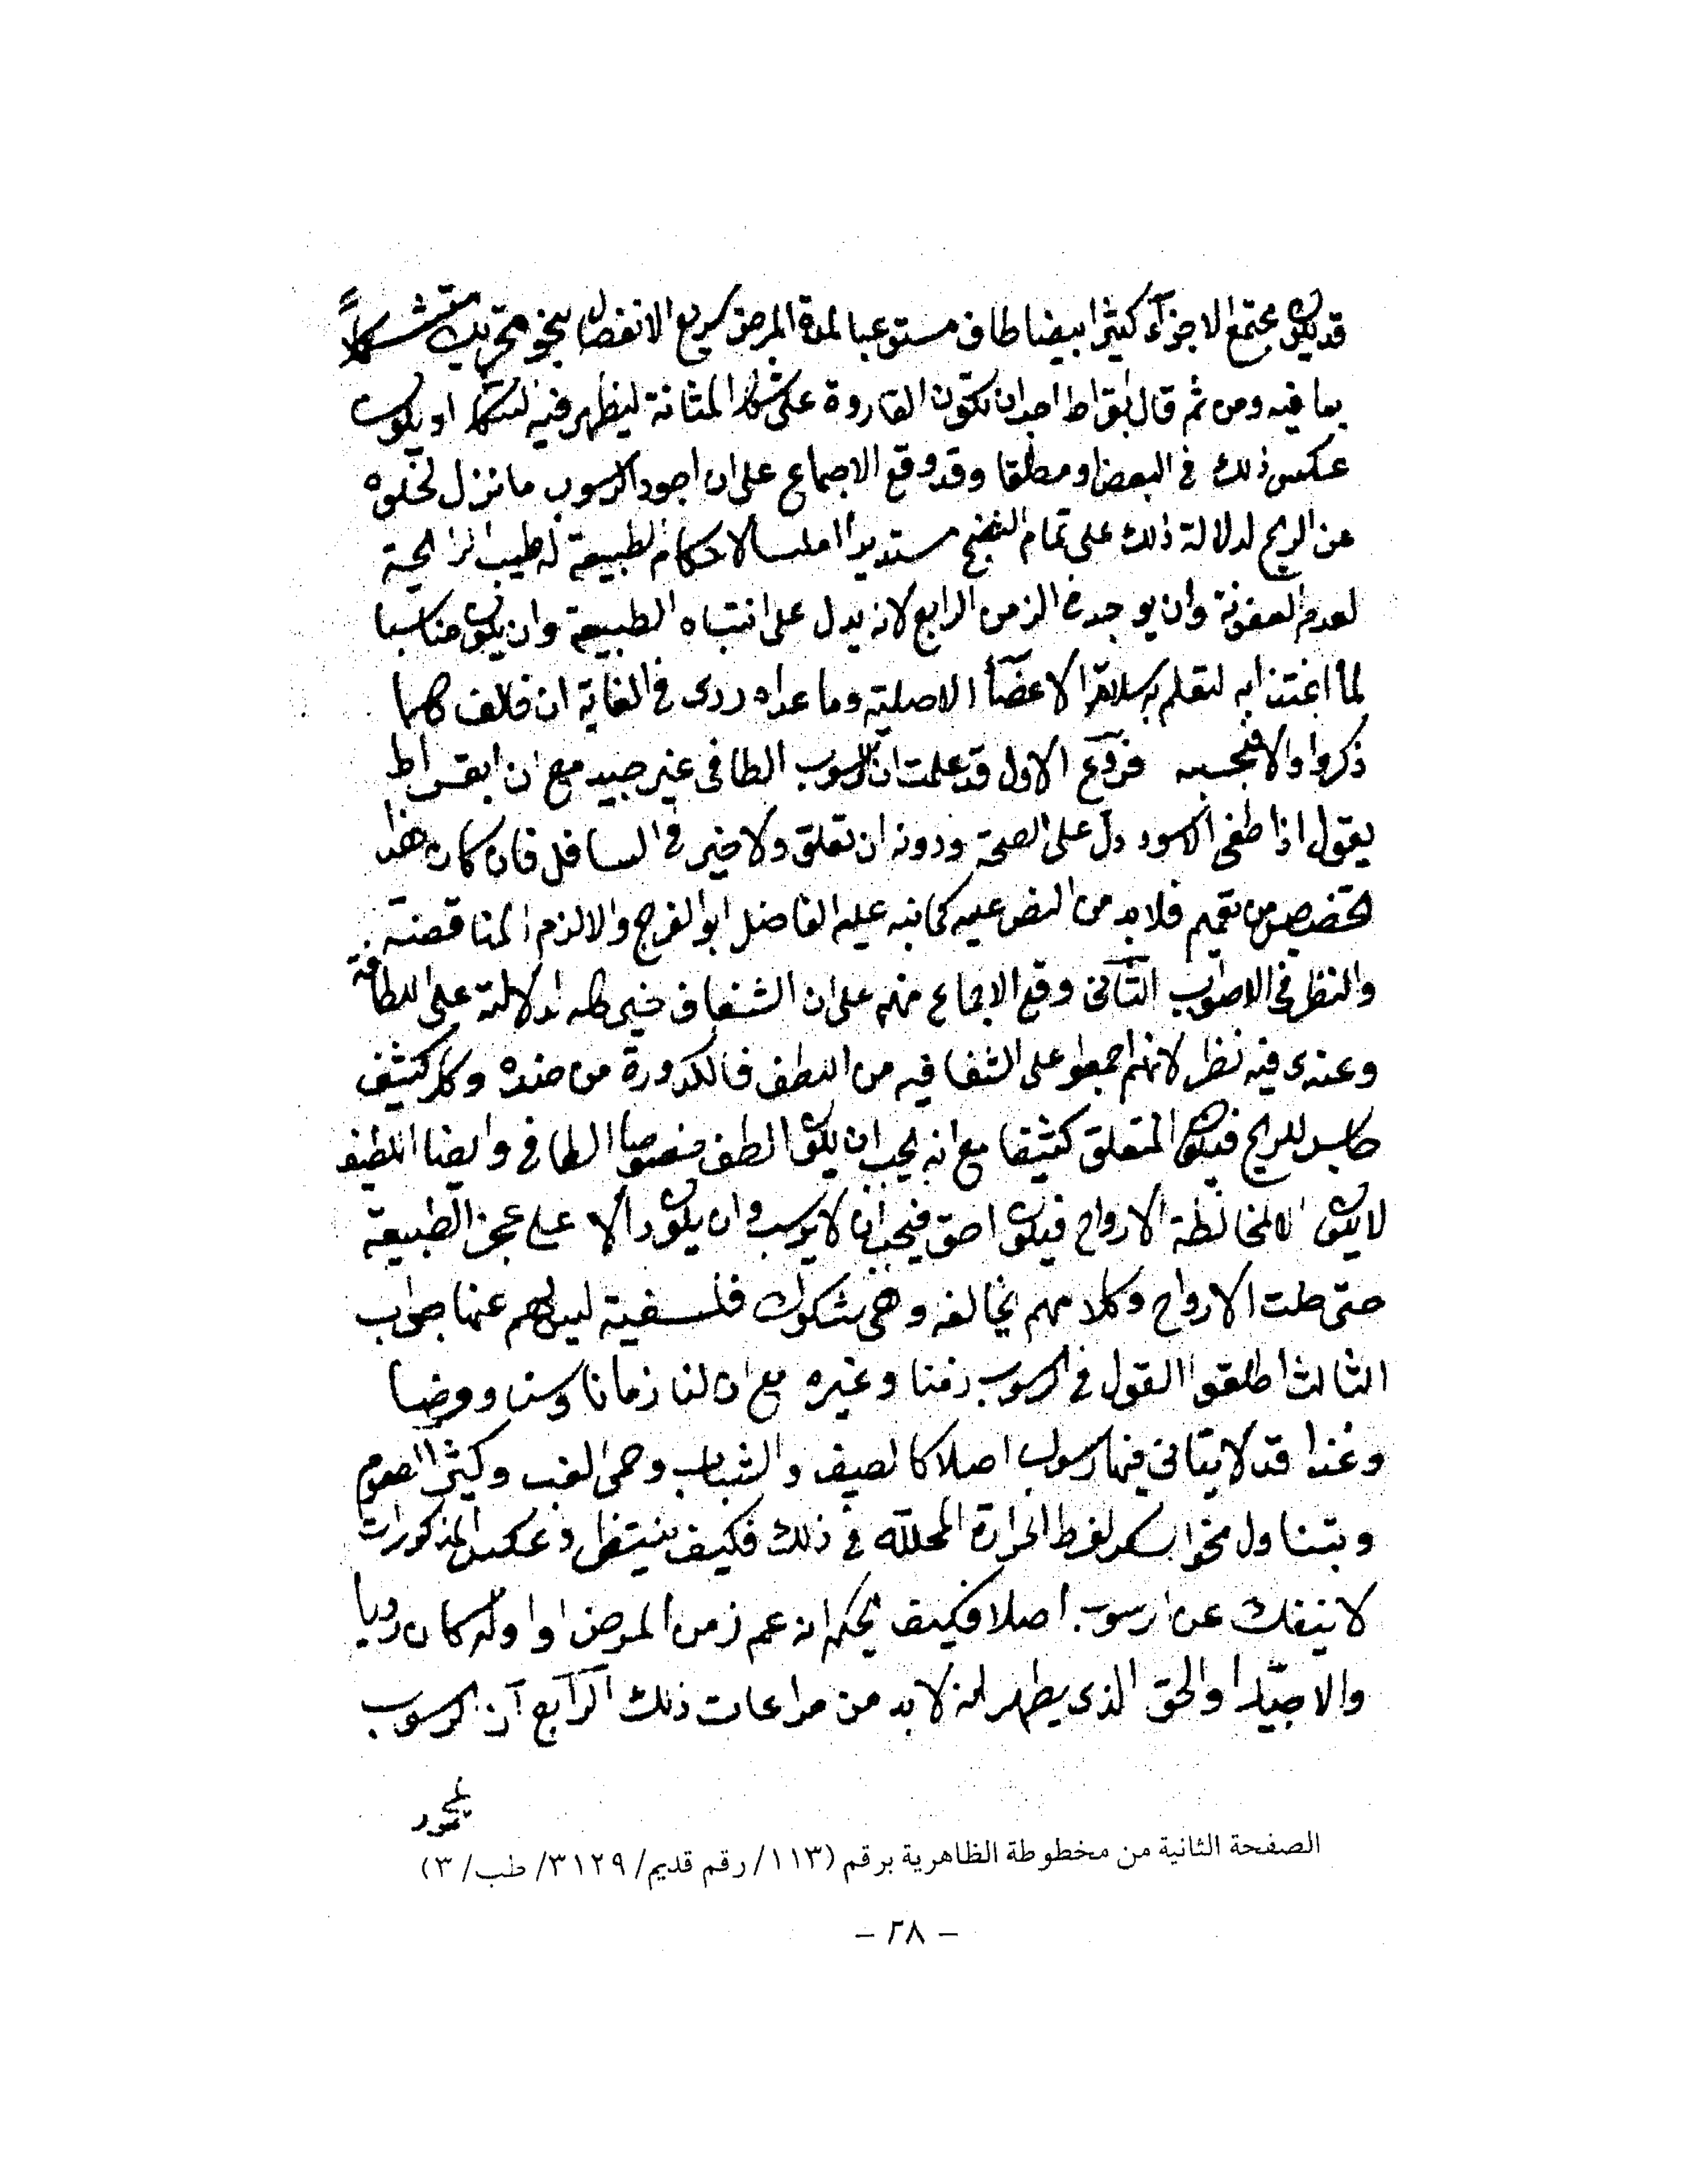 قد يكون مجتمع الاجزآء كثيرا ابيضا طاف مستوعبا لمدة المرض سريع الانفصال بنحو تحريك متشكلاً
بما فيه ومن ثم قال بقراط احب ان تكون القاروة على شكل المثانة ليظهر فيه لتشكله او يكون
عكس ذلك في البعض او مطلقا وقد وقع الاجماع على ان اجود الرسوب ما نزل لخلوه
عن الريح لدلالة ذلك على تمام النضج مستديرا املسا لاحكام الطبيعة له طيب الرايحة
لعدم العفونة وان يوجد في الزمن الرابع لانه يدل على انتباه الطبيعة وان يكون مناسبا
لما اغتذا به لتعلم به سلامة الاعضآ الاصلية وما عداه ردى في الغاية ان خالف كلما
ذكروا والا فبحسبه فروع الاول قد علمت ان الرسوب الطافي غير جيد مع ان ابقراط
يقول اذا طفى الاسود دل على الصحة ودونه ان تعلق ولا خير في السافل فان كان هذا
تخصيص من تعميم فلا بد من النص عليه كما نبه عليه الفاضل ابو الفرج والا لزم المناقضة
والنظر في الاصوب الثاني وقع الاجماع منهم على ان الشفاف خير كله لدلالته على اللطافة
وعندى فيه نظر لانهم اجمعوا على الشفافيه من اللطف فالكدورة من ضده وكل كثيف
حابس للريح فيكون المتعلق كثيفا مع انه يجب ان يكون الطف خصوصا الطافي وايضا اللطيف
لا يكون الا لمخالطة الارواح فيكون احق فيجب ان لا يرسب وان يكون دالا على عجز الطبيعة
حتى حلت الارواح وكلامهم يخالفه وهى شكوك فلسفية ليس لهم عنها جواب
الثالث اطلقوا القول في الرسوب زمنا وغيره مع ان لنا زمانا وسنا ومرضا
وغذا قد لا يتاتى فيها رسوب اصلا كالصيف والشباب وحمى الغب وكيثر الصوم
وبتناول نحو السكر لفرط الحرارة المحللة في ذلك فكيف ينتظر وعكس المذكورات
لا ينفك عن ارسوب اصلا فكيف يحكم انه عم زمن المرض او اوله كان رديا
والا جيّدا والحق الذى يظهر انه لا بد من مراعات ذلك الرابع آن الرسوب
الصفحة الثانية من مخطوطة الظاهرية برقم (١١٣/ رقم قديم/ ٣١٢٩/ طب/ ٣)
- ٢٨ -